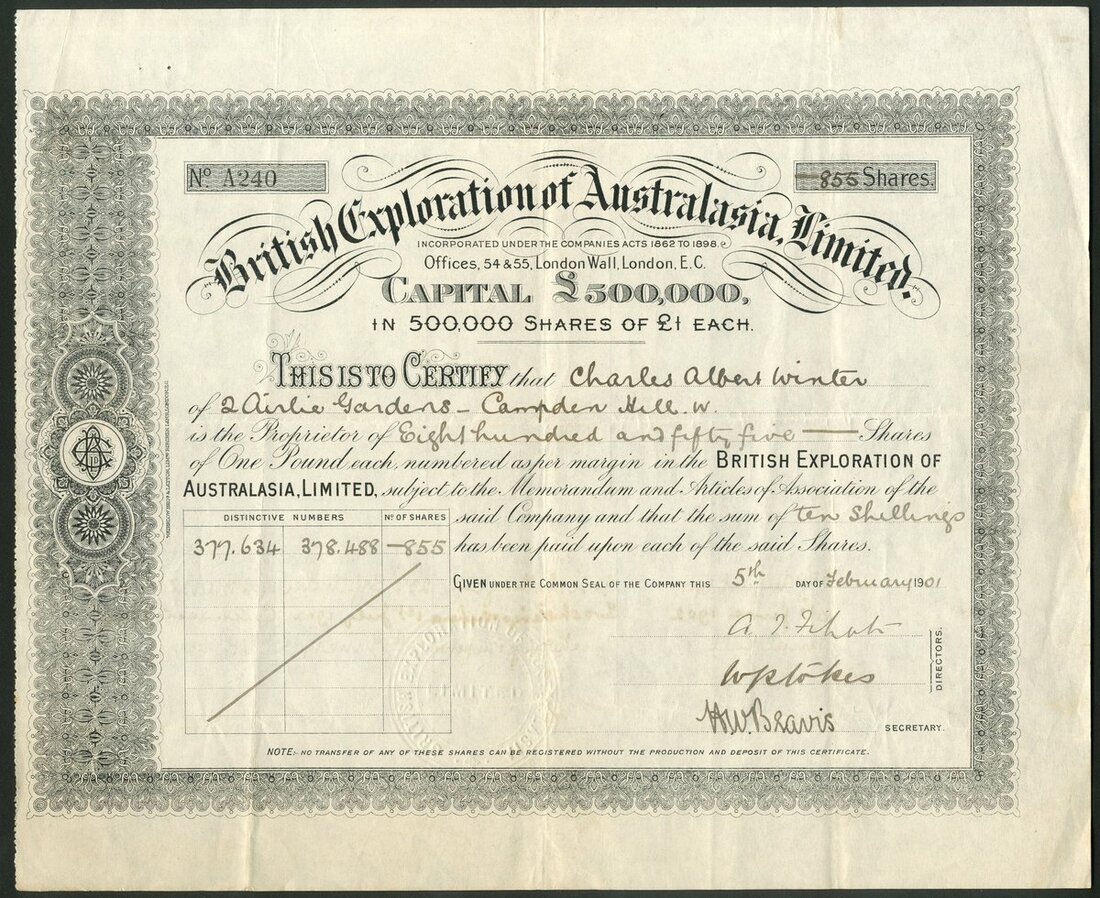 Nº A240
855 Shares.
British Exploration of Australasia, Limited.
INCORPORATED UNDER THE COMPANIES ACTS 1862 TO 1898.
Offices, 54 & 55, London Wall, London, E.C.
CAPITAL £500,000,
IN 500,000 SHARES OF £1 EACH.
THIS IS TO CERTIFY that Charles Albert Winter
of 2 Airlie Gardens – Campden Hill. W.
is the Proprietor of Eight hundred and fifty five — Shares
of One Pound each, numbered as per margin in the BRITISH EXPLORATION OF
AUSTRALASIA, LIMITED, subject to the Memorandum and Articles of Association of the
said Company and that the sum of ten Shillings
has been paid upon each of the said Shares.
DISTINCTIVE NUMBERS Nº OF SHARES
377.634 378.488 –855
GIVEN UNDER THE COMMON SEAL OF THE COMPANY THIS 5th DAY OF February 1901
W P Stokes
DIRECTORS.
H.W. Beavis SECRETARY.
NOTE:- NO TRANSFER OF ANY OF THESE SHARES CAN BE REGISTERED WITHOUT THE PRODUCTION AND DEPOSIT OF THIS CERTIFICATE.